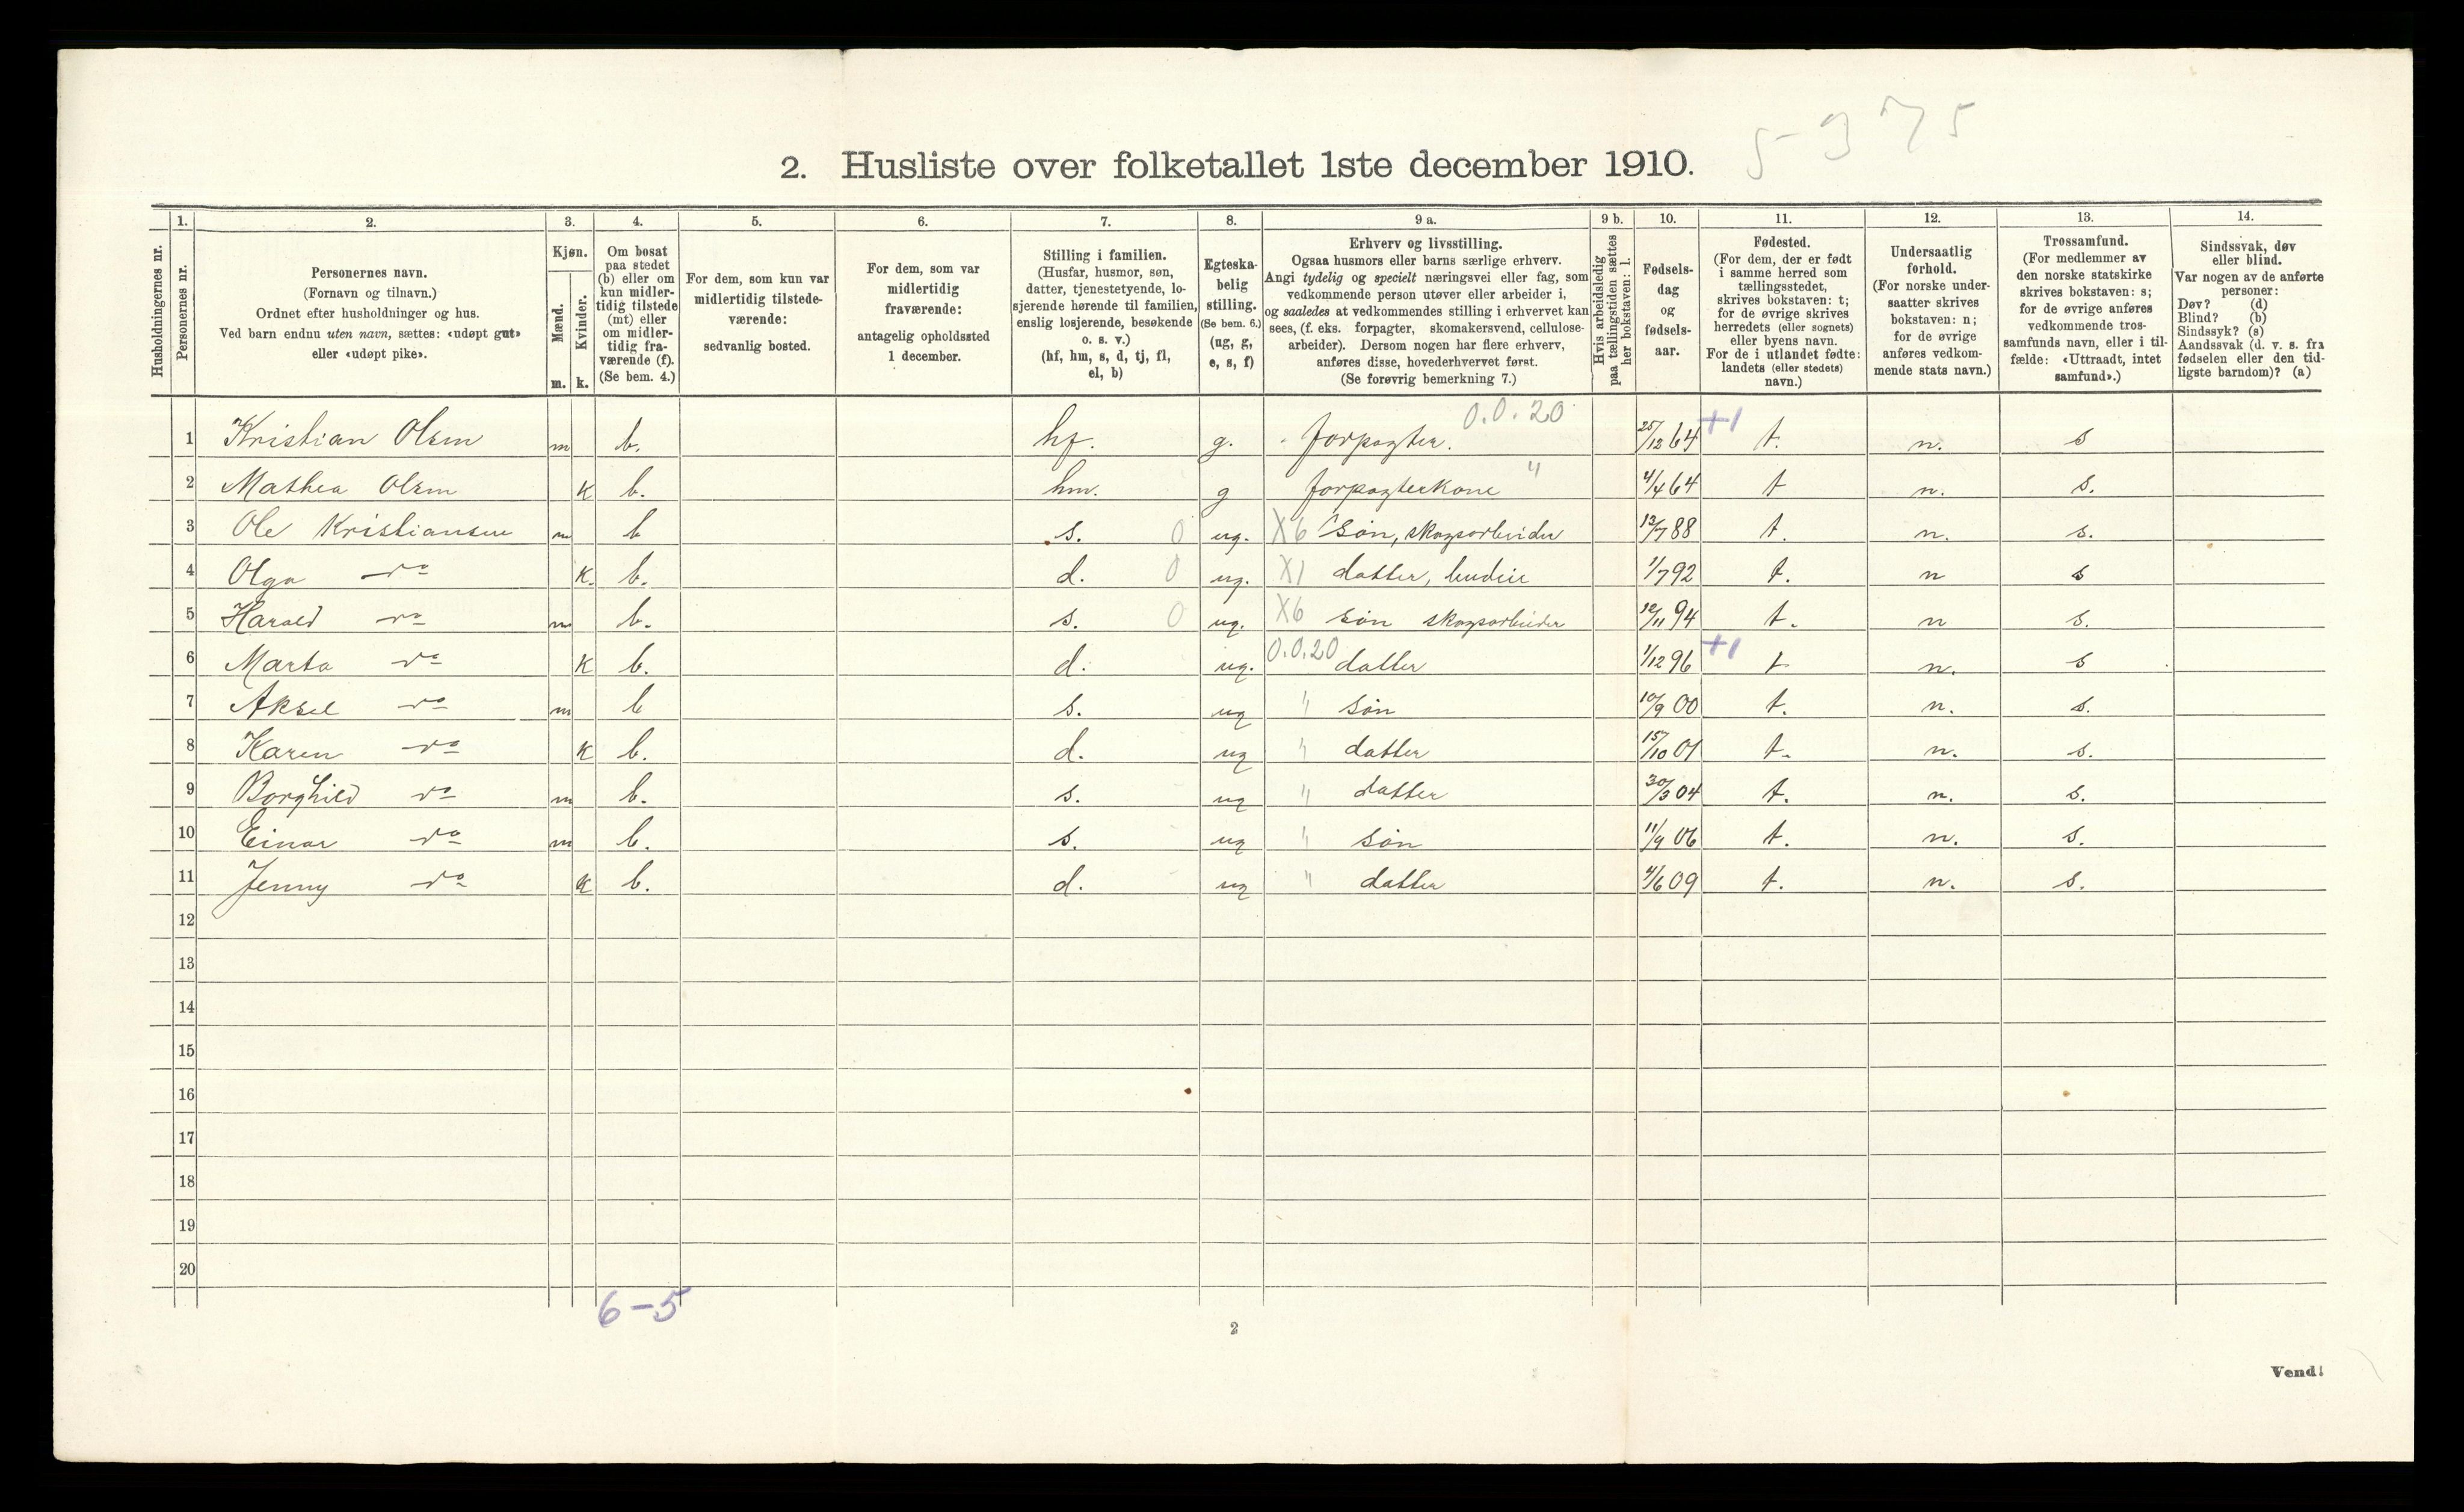 5-375
2. Husliste over folketallet 1ste december 1910.
Husholdningernes nr.
1. Personernes nr.
2. Personernes navn.
(Fornavn og tilnavn.)
Ordnet efter husholdninger og hus.
Ved barn endnu uten navn, sættes: «udøpt gut»
eller «udøpt pike».
3. Kjøn.
Mænd. m.
Kvinder. k.
4. Om bosat
paa stedet
(b) eller om
kun midler-
tidig tilstede
(mt) eller
om midler-
tidig fra-
værende (f).
(Se bem. 4.)
5. For dem, som kun var
midlertidig tilstede-
værende:
sedvanlig bosted.
6. For dem, som var
midlertidig
fraværende:
antagelig opholdssted
1 december.
7. Stilling i familien.
(Husfar, husmor, søn,
datter, tjenestetyende, lo-
sjerende hørende til familien,
enslig losjerende, besøkende
o. s. v.)
(hf, hm, s, d, tj, fl,
el, b)
8. Egteska-
belig
stilling.
(Se bem. 6.)
(ug, g,
e, s, f)
9 a. Erhverv og livsstilling.
Ogsaa husmors eller barns særlige erhverv.
Angi tydelig og specielt næringsvei eller fag, som
vedkommende person utøver eller arbeider i,
og saaledes at vedkommendes stilling i erhvervet kan
sees, (f. eks. forpagter, skomakersvend, cellulose-
arbeider). Dersom nogen har flere erhverv,
anføres disse, hovederhvervet først.
(Se forøvrig bemerkning 7.)
9 b. Hvis arbeidsledig
paa tællingstiden sættes
her bokstaven: l.
10. Fødsels-
dag
og
fødsels-
aar.
11. Fødested.
(For dem, der er født
i samme herred som
tællingsstedet,
skrives bokstaven: t;
for de øvrige skrives
herredets (eller sognets)
eller byens navn.
For de i utlandet fødte:
landets (eller stedets)
navn.)
12. Undersaatlig
forhold.
(For norske under-
saatter skrives
bokstaven: n;
for de øvrige
anføres vedkom-
mende stats navn.)
13. Trossamfund.
(For medlemmer av
den norske statskirke
skrives bokstaven: s;
for de øvrige anføres
vedkommende tros-
samfunds navn, eller i til-
fælde: «Uttraadt, intet
samfund».)
14. Sindssvak, døv
eller blind.
Var nogen av de anførte
personer:
Døv? (d)
Blind? (b)
Sindssyk? (s)
Aandssvak (d. v. s. fra
fødselen eller den tid-
ligste barndom)? (a)
0.0.20
1 Kristian Olsen m b. hf. g. forpagter. 25/12 64 +1 t. n. s
2 Mathea Olsen k b. hm. g forpagterkone " 4/4 64 t n. s.
3 Ole Kristiansen m b s. 0 ug. X6 søn, skogsarbeider 13/7 88 t. n. s.
4 Olga do k. b. d. 0 ug. X1 datter, budeie 1/7 92 t. n s
5 Harald do m b. s. 0 ug. X6 søn skogsarbeider 12/11 94 t. n s.
6 Marta do k b. d. ug. 0.0.20 datter 1/12 96 +1 t n. s
7 Aksel do m b s. ug " søn 10/9 00 t. n. s.
8 Karen do k b. d. ug " datter 15/10 01 t. n. s.
9 Borghild do m b. s. ug " datter 30/3 04 t. n. s.
10 Einar do m b. s. ug " søn 11/9 06 t. n. s.
11 Jenny do k b. d. ug " datter 4/6 09 t. n. s.
12
13
14
15
16
17
18
19
20
6-5
2
Vend!